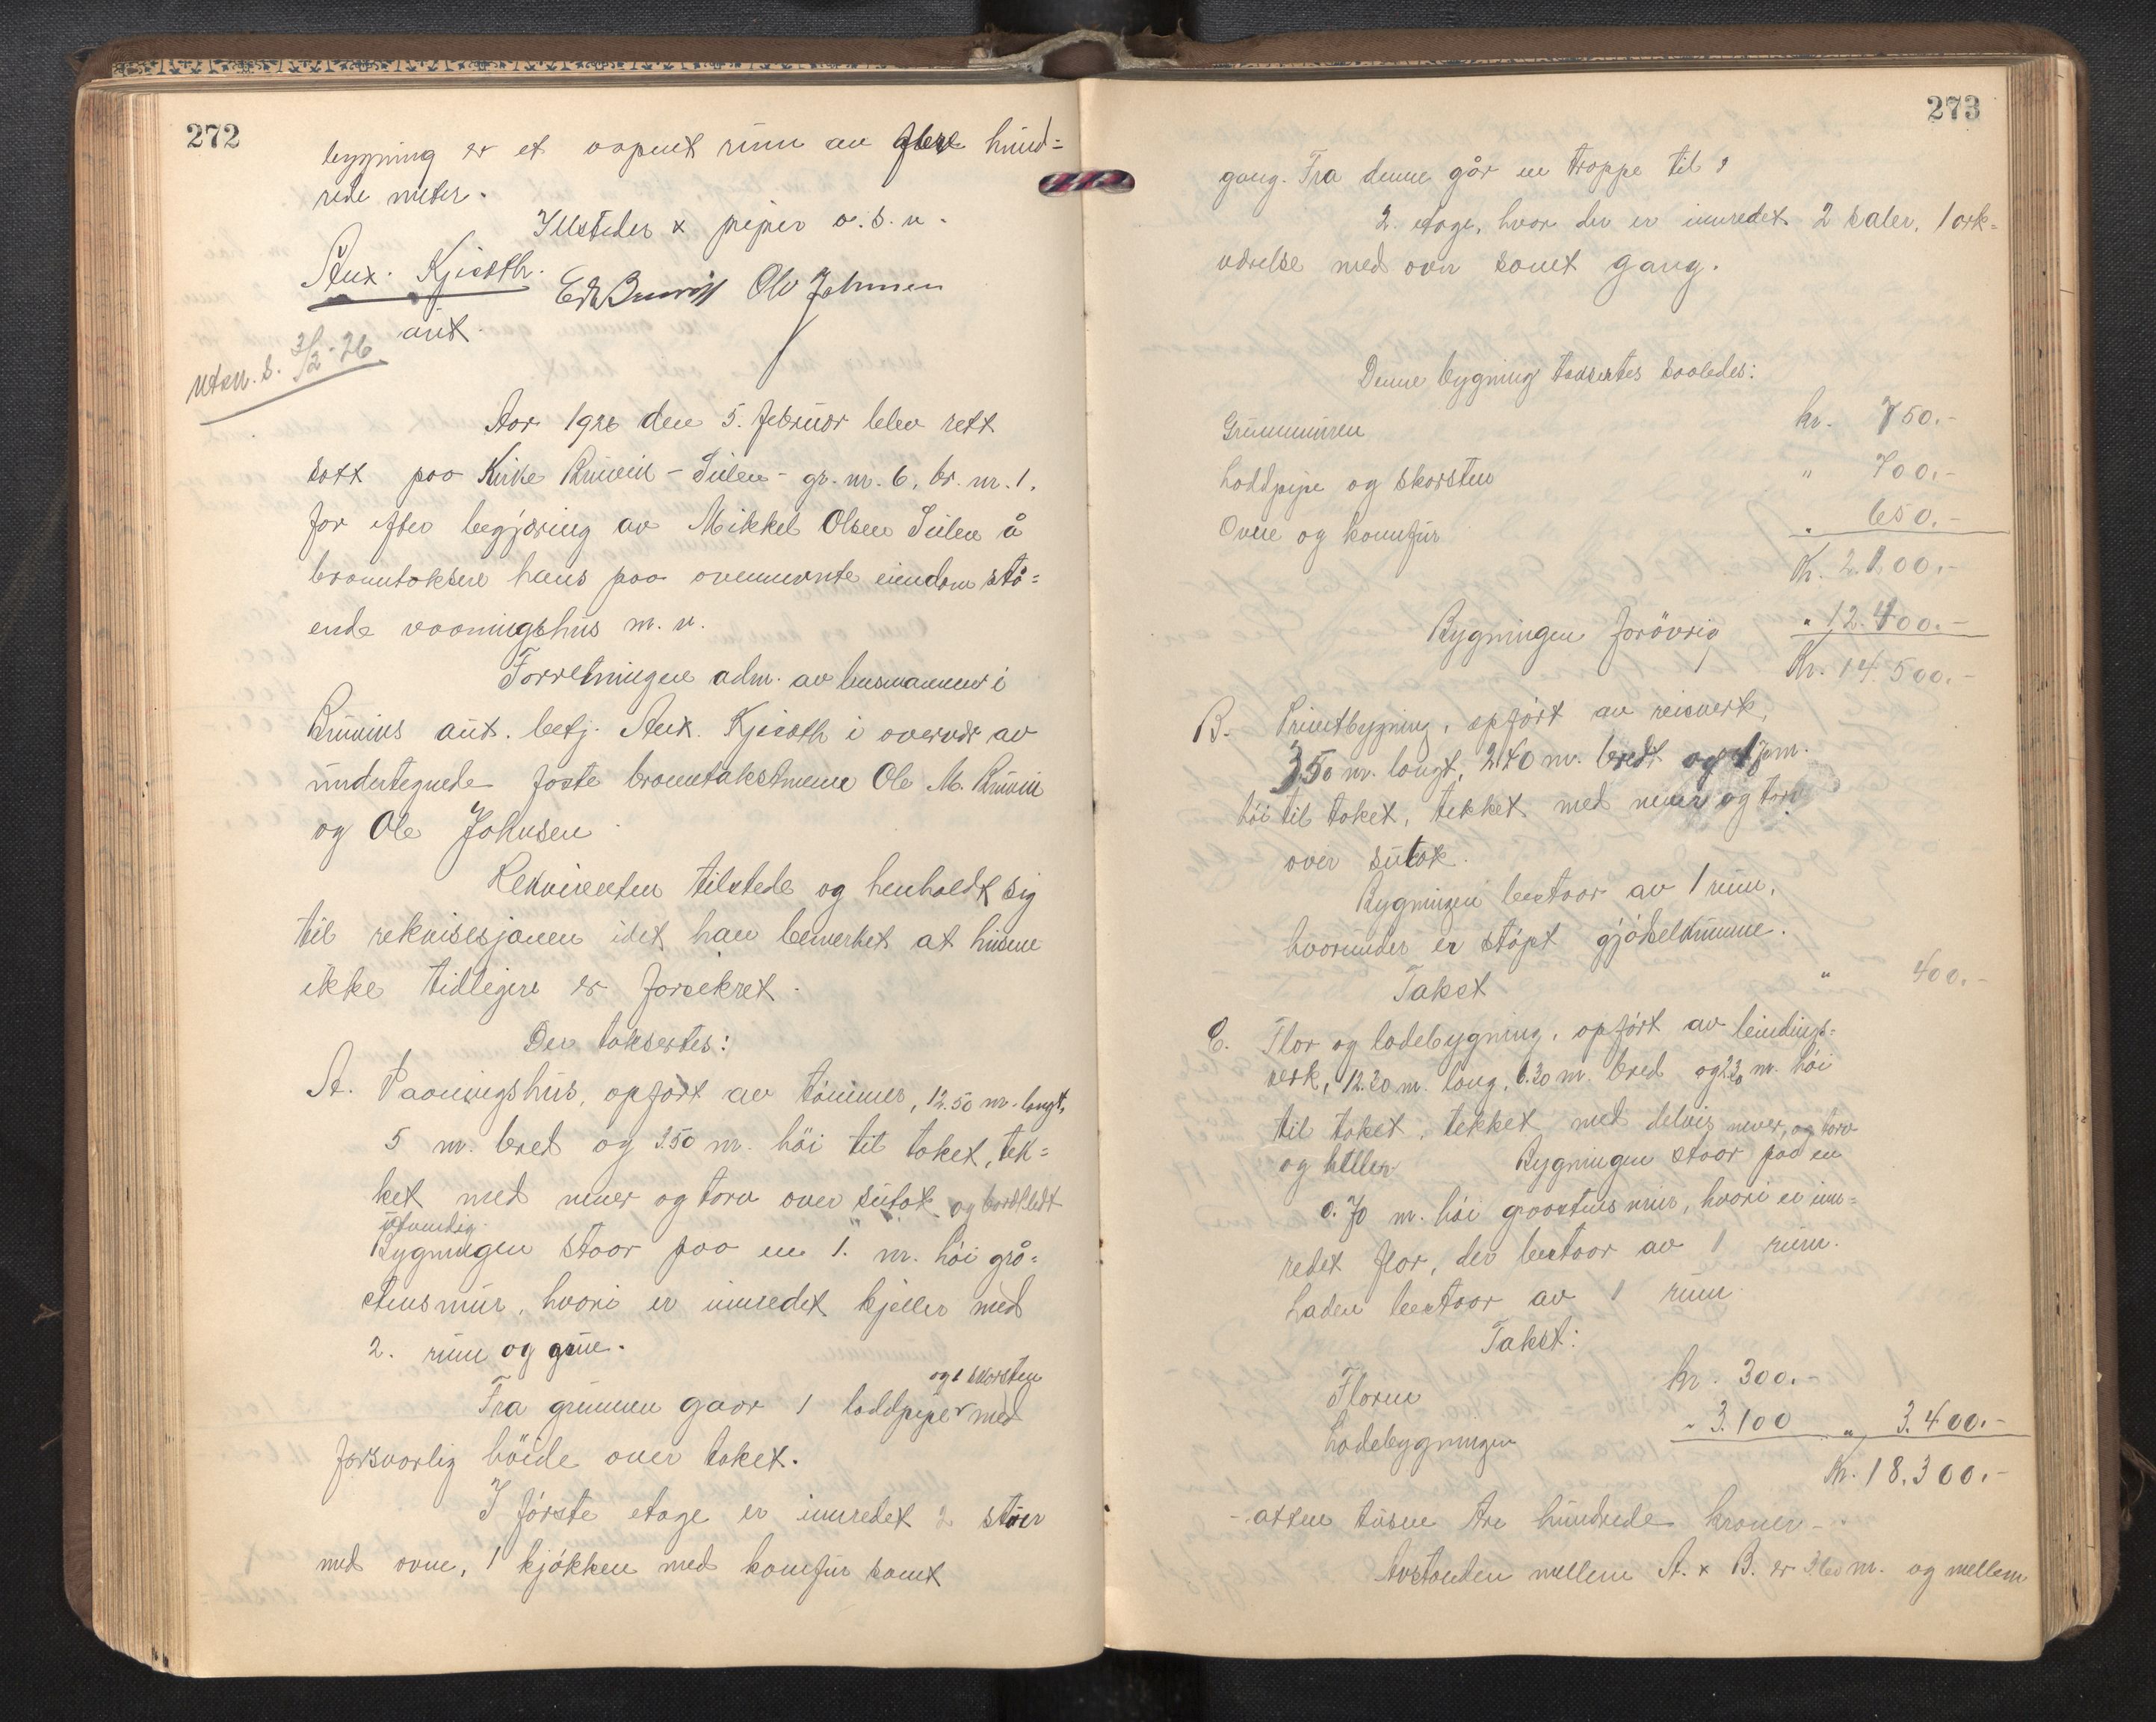 272
bygning er et aapent rum av flere hund=
rede meter.
Ildsteder & piper o.s.v.
Anx. Kjisoth. Ole Johnsen
aut.
utsn. s. 3/2-26
Aar 1926 den 5. februar blev rett
satt paa Kirke Bruvik - Tulen - gr. nr. 6, br. nr. 1.
for efter begjæring av Mikkel Olsen Tulen å
branntaksere hans paa ovennevnte eiendom stå=
ende vaaningshus m. v.
Forretningen adm. av lensmannen i
Bruviks aut. betj. Anx. Kjisoth i overvær av
undertegnede faste branntakstmenn Ole M. Bruvik
og Ole Johnsen
Rekvirenten tilstede og henholdt sig
til rekvisisjonen idet han bemerket at husene
ikke tidligere er forsikret.
Der taksertes:
A. Vaaningshus, opført av tømmer, 12.50 m. langt,
5 m. bred og 3.50 m. höi til taket, tek=
ket med never og torv over sutak og bordkledt
utvendig.
Bygningen staar paa en 1. m. höi grå=
stensmur, hvori er innredet kjeller med
2. rum og grue.
og 1 skorsten
Fra grunnen gaar 1 loddpipe med
forsvarlig höide over taket.
I förste etage er innredet 2 stuer
med ovne, 1 kjøkken med komfur samt
273
gang. Fra denne går en trappe til
2. etage, hvor der er innredet 2 saler, 1 ark=
værelse med ovn samt gang.
Denne bygning taksertes saaledes:
Grunnmuren kr. 750.-
Loddpipe og skorsten " 700.-
Ovne og komfur " 650.-
Kr. 2.100.-
Bygningen forövrig " 12.400.-
Kr. 14.500.-
B. Privetbygning, opført av reisverk,
3.50 m. langt, 2.40 m. bredt og m.
höi til taket, tekket med never og torv
over sutak.
Bygningen bestaar av 1 rum,
hvorunder er støpt gjødselkumme.
Takst " 400.-
C. Flor og ladebygning, opført av bindings-
verk, 12.30 m. lang, 6.30 m. bred og m. höi
til taket, tekket med delvis never, og torv
og heller. Bygningen staar paa en
0.70 m. höi graastensmur, hvori er inn=
redet flor, der bestaar av 1 rum.
Laden bestaar av 1 rum.
Takst:
Floren kr. 300.-
Ladebygningen " 3.100 " 3.400.-
Kr. 18.300.-
- atten tusen tre hundrede kroner -
Avstanden mellem A. & B. er 3.60 m. og mellem